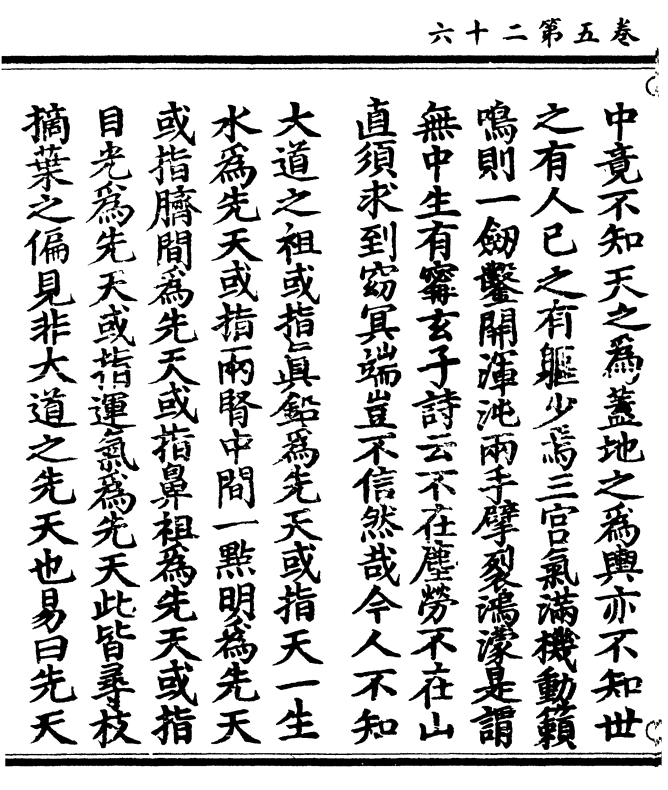 卷五第二十六
中竟不知天之為蓋地之為輿亦不知世
之有人己之有軀少焉三宮氣滿機動籟
鳴則一劒鑿開渾沌兩手擘裂鴻濛是謂
無中生有霱玄子詩云不在塵勞不在山
直須求到窈冥端豈不信然哉今人不知
大道之祖或指眞鉛為先天或指天一生
水為先天或指兩腎中間一點明為先天
或指臍間為先天或指鼻祖為先天或指
目光為先天或指運氣為先天此皆尋枝
摘葉之偏見非大道之先天也易曰先天